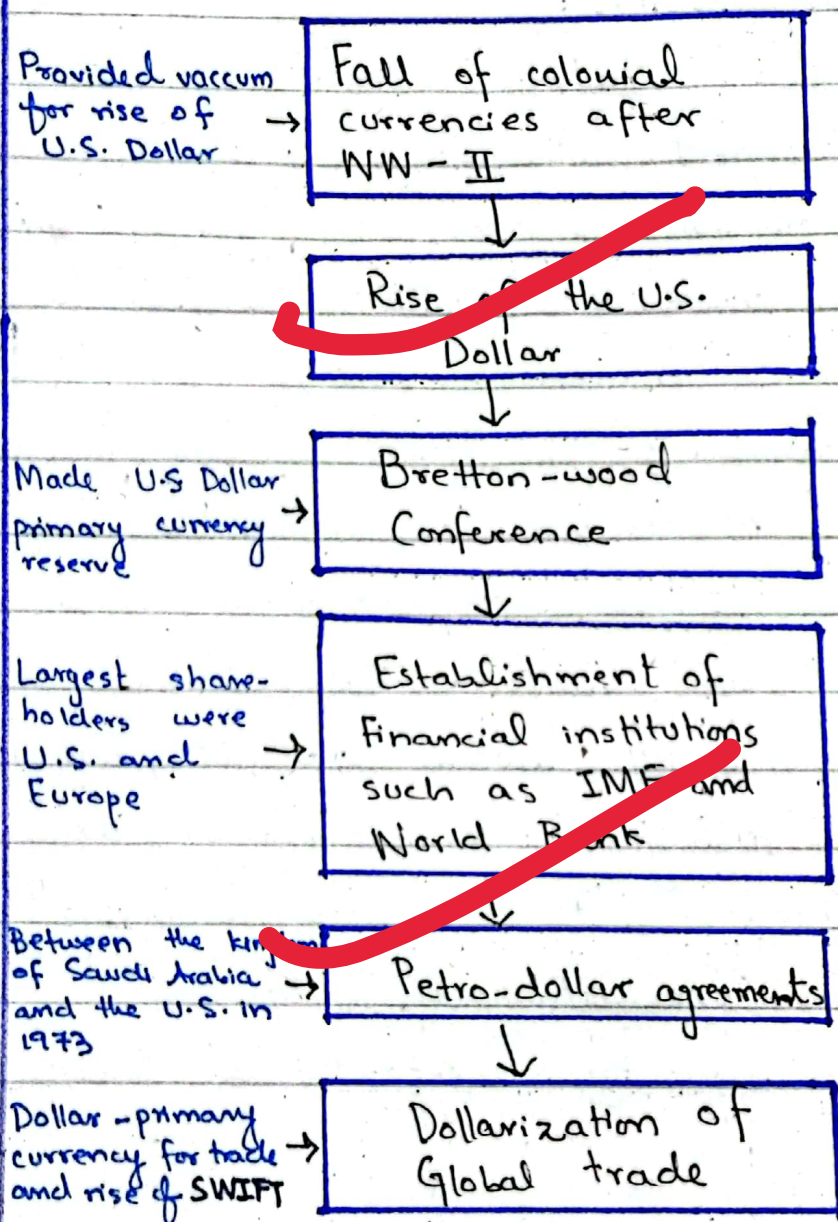 Provided vaccum
for rise of
U.S. Dollar →
Fall of colonial
currencies after
WW - II
Rise of the U.S.
Dollar
Made U.S Dollar
primary currency →
reserve
Bretton-wood
Conference
Largest share-
holders were
U.S. and →
Europe
Establishment of
financial institutions
such as IMF and
World Bank
Between the kingdom
of Saudi Arabia →
and the U.S. in
1973
Petro-dollar agreements
Dollar - primary
currency for trade →
and rise of SWIFT
Dollarization of
Global trade